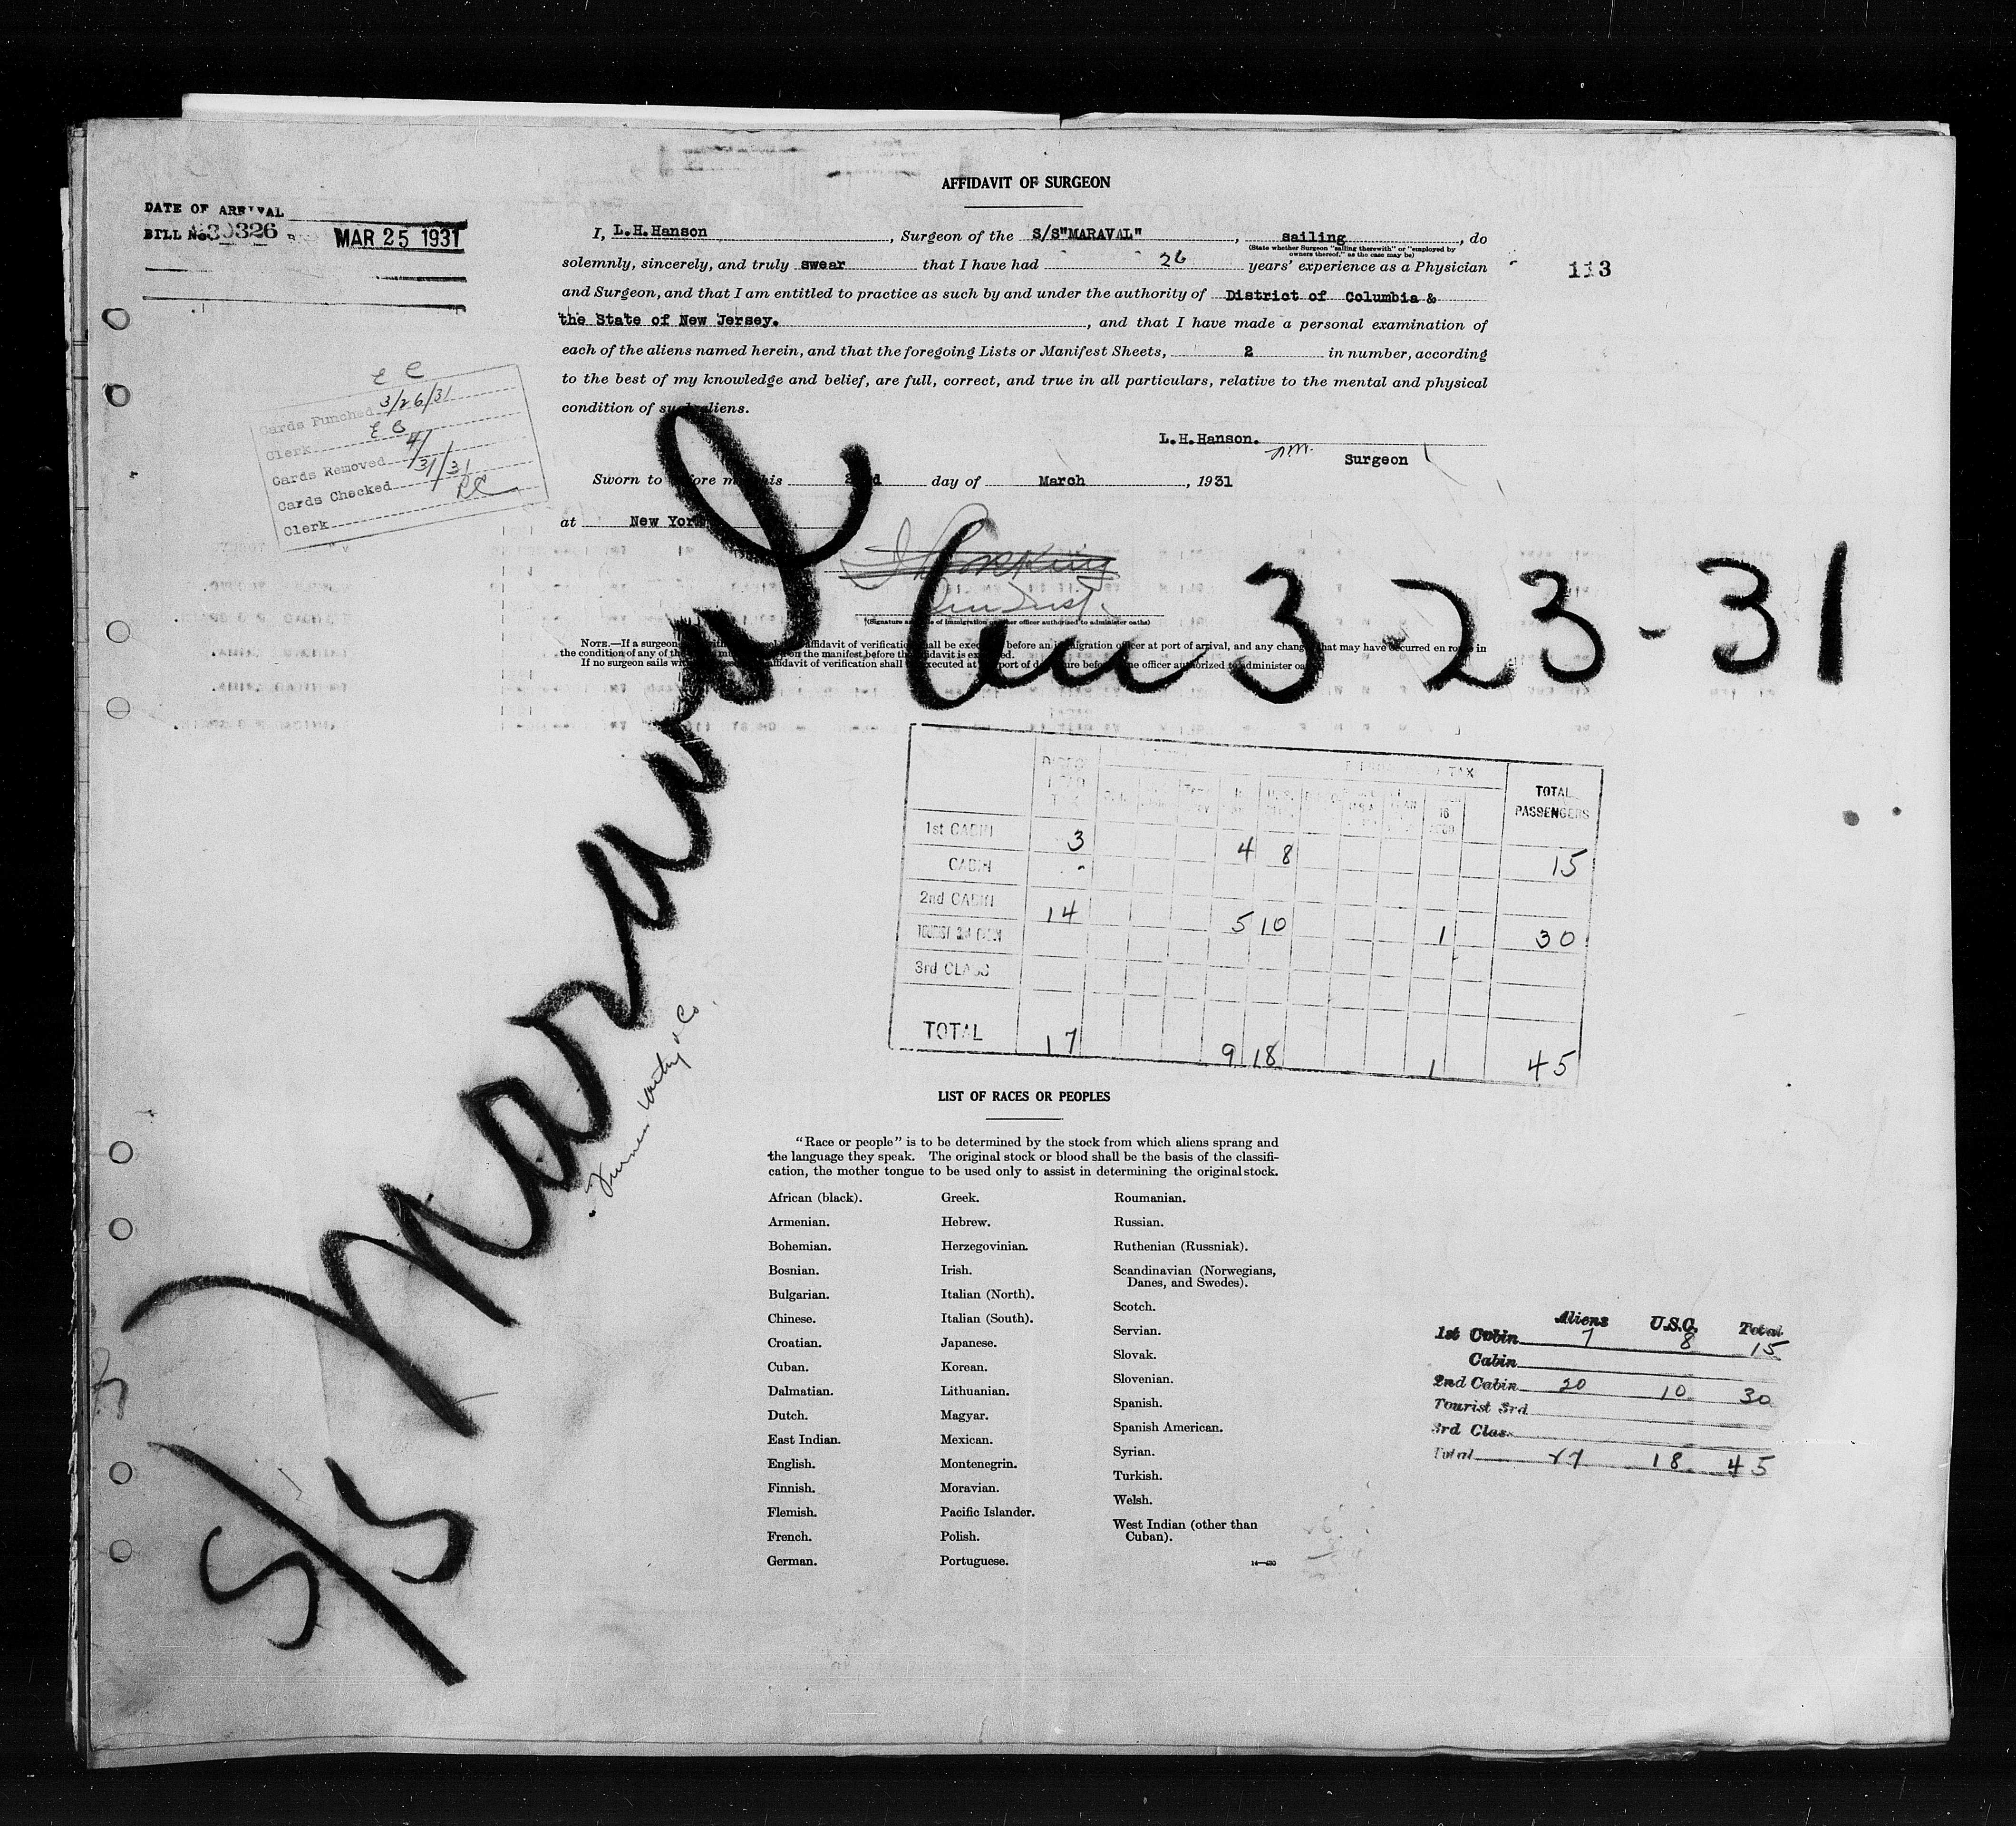 AFFIDAVIT OF SURGEON
DATE OF ARRIVAL
BILL No. 30326 MAR 25 1931
I, L.H.Hanson, Surgeon of the S/S"MARAVAL", sailing, do
(State whether Surgeon "sailing therewith" or "employed by
owners thereof," as the case may be)
solemnly, sincerely, and truly swear that I have had 26 years' experience as a Physician
113
and Surgeon, and that I am entitled to practice as such by and under the authority of District of Columbia &
the State of New Jersey., and that I have made a personal examination of
each of the aliens named herein, and that the foregoing Lists or Manifest Sheets, 2 in number, according
to the best of my knowledge and belief, are full, correct, and true in all particulars, relative to the mental and physical
condition of such aliens.
L.H.Hanson.
Surgeon
Sworn to before me this day of March, 1931
at New York
Cards Punched 3/26/31
Clerk
Cards Removed
Cards Checked
Clerk
(Signature and title of immigration or other officer authorized to administer oaths)
NOTE.—If a surgeon affidavit of verification shall be executed before an immigration officer at port of arrival, and any change that may have occurred en route in
the condition of any of the on the manifest before the affidavit is executed.
If no surgeon sails with affidavit of verification shall be executed at port of departure before officer authorized to administer oaths
S/S Maraval
3-23-31
TOTAL PASSENGERS
1st CABIN 3 4 8 15
CABIN -
2nd CABIN 14 5 10 1 30
TOURIST 3rd CABIN
3rd CLASS
TOTAL 17 9 18 1 45
LIST OF RACES OR PEOPLES
"Race or people" is to be determined by the stock from which aliens sprang and
the language they speak. The original stock or blood shall be the basis of the classifi-
cation, the mother tongue to be used only to assist in determining the original stock.
African (black).
Armenian.
Bohemian.
Bosnian.
Bulgarian.
Chinese.
Croatian.
Cuban.
Dalmatian.
Dutch.
East Indian.
English.
Finnish.
Flemish.
French.
German.
Greek.
Hebrew.
Herzegovinian.
Irish.
Italian (North).
Italian (South).
Japanese.
Korean.
Lithuanian.
Magyar.
Mexican.
Montenegrin.
Moravian.
Pacific Islander.
Polish.
Portuguese.
Roumanian.
Russian.
Ruthenian (Russniak).
Scandinavian (Norwegians,
Danes, and Swedes).
Scotch.
Servian.
Slovak.
Slovenian.
Spanish.
Spanish American.
Syrian.
Turkish.
Welsh.
West Indian (other than
Cuban).
Aliens U.S.C. Total
1st Cabin 7 8 15
Cabin
2nd Cabin 20 10 30
Tourist 3rd
3rd Class
Total 27 18 45